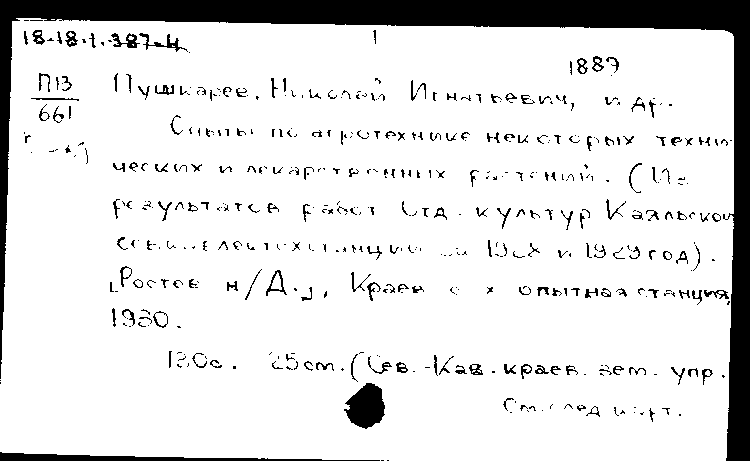 18-18.1.387-4
1
1889
П13
661
Пушкарев, Николай Игнатьевич, и др.
Опыты по агротехнике некоторых техни-
ческих и лекарственных растений. (Из
результатов работ Отд. культур Каяльской
за 1928 и 1929 год).
[Ростов н/Д.], Краев с х опытная станция,
1930.
130с. 25см. (Сев.-Кав. краев. зем. упр.
См. след карт.